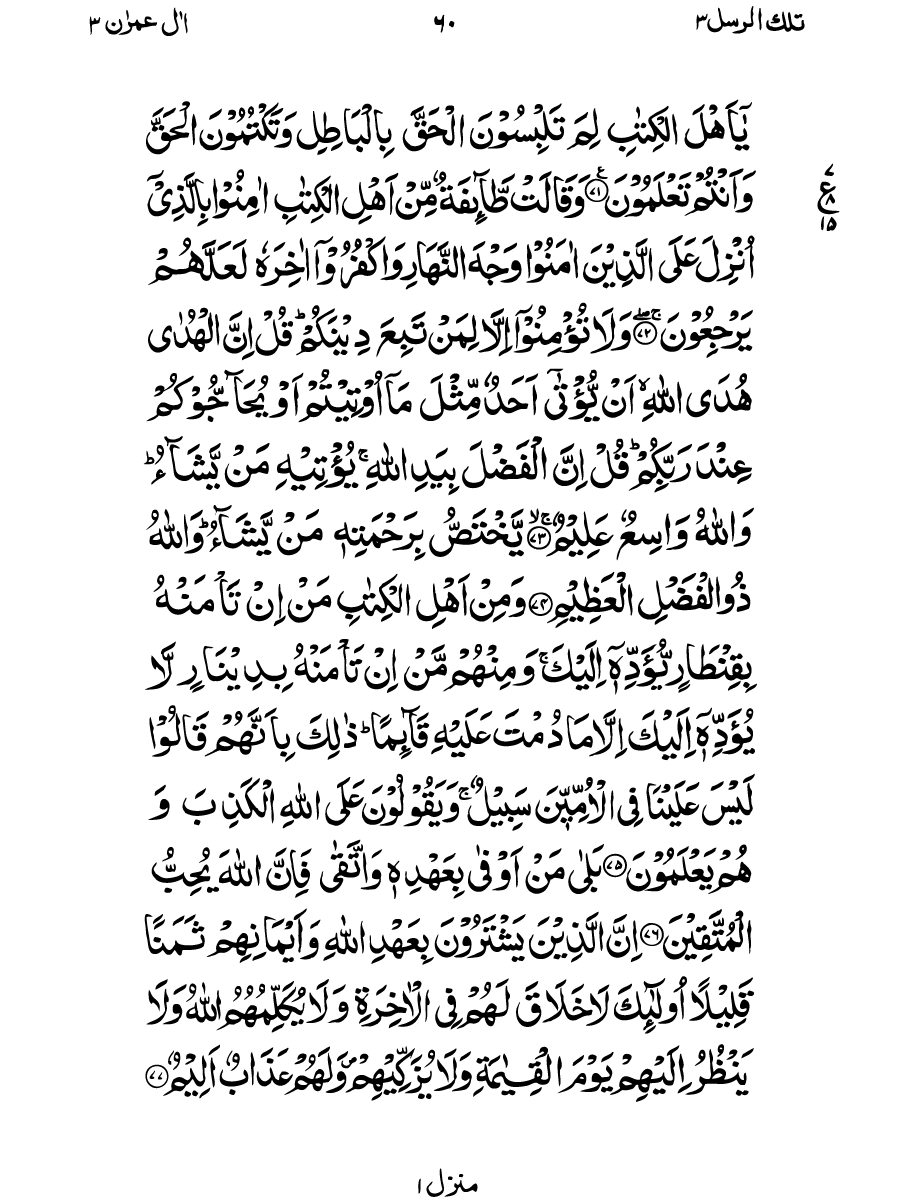 تلك الرسل۳ ۶۰ اٰل عمرٰن ۳
يٰۤاَهْلَ الْكِتٰبِ لِمَ تَلْبِسُوْنَ الْحَقَّ بِالْبَاطِلِ وَتَكْتُمُوْنَ الْحَقَّ
وَاَنْتُمْ تَعْلَمُوْنَ۝۷۱ۧ وَقَالَتْ طَّآىِٕفَةٌ مِّنْ اَهْلِ الْكِتٰبِ اٰمِنُوْا بِالَّذِىْۤ
۷ ع ۸ ۱۵
اُنْزِلَ عَلَى الَّذِيْنَ اٰمَنُوْا وَجْهَ النَّهَارِ وَاكْفُرُوْۤا اٰخِرَهٗ لَعَلَّهُمْ
يَرْجِعُوْنَ۝۷۲ۚۖ وَلَا تُؤْمِنُوْۤا اِلَّا لِمَنْ تَبِعَ دِيْنَكُمْؕ قُلْ اِنَّ الْهُدٰى
هُدَى اللّٰهِۙ اَنْ يُّؤْتٰۤى اَحَدٌ مِّثْلَ مَاۤ اُوْتِيْتُمْ اَوْ يُحَآجُّوْكُمْ
عِنْدَ رَبِّكُمْؕ قُلْ اِنَّ الْفَضْلَ بِيَدِ اللّٰهِۚ يُؤْتِيْهِ مَنْ يَّشَآءُؕ
وَاللّٰهُ وَاسِعٌ عَلِيْمٌ۝۷۳ۚۙ يَّخْتَصُّ بِرَحْمَتِهٖ مَنْ يَّشَآءُؕ وَاللّٰهُ
ذُو الْفَضْلِ الْعَظِيْمِ۝۷۴ وَمِنْ اَهْلِ الْكِتٰبِ مَنْ اِنْ تَاْمَنْهُ
بِقِنْطَارٍ يُّؤَدِّهٖۤ اِلَيْكَۚ وَمِنْهُمْ مَّنْ اِنْ تَاْمَنْهُ بِدِيْنَارٍ لَّا
يُؤَدِّهٖۤ اِلَيْكَ اِلَّا مَا دُمْتَ عَلَيْهِ قَآىِٕمًاؕ ذٰلِكَ بِاَنَّهُمْ قَالُوْا
لَيْسَ عَلَيْنَا فِى الْاُمِّيّٖنَ سَبِيْلٌۚ وَيَقُوْلُوْنَ عَلَى اللّٰهِ الْكَذِبَ وَ
هُمْ يَعْلَمُوْنَ۝۷۵ بَلٰى مَنْ اَوْفٰى بِعَهْدِهٖ وَاتَّقٰى فَاِنَّ اللّٰهَ يُحِبُّ
الْمُتَّقِيْنَ۝۷۶ اِنَّ الَّذِيْنَ يَشْتَرُوْنَ بِعَهْدِ اللّٰهِ وَاَيْمَانِهِمْ ثَمَنًا
قَلِيْلًا اُولٰٓىِٕكَ لَا خَلَاقَ لَهُمْ فِى الْاٰخِرَةِ وَلَا يُكَلِّمُهُمُ اللّٰهُ وَلَا
يَنْظُرُ اِلَيْهِمْ يَوْمَ الْقِيٰمَةِ وَلَا يُزَكِّيْهِمْ۪ وَلَهُمْ عَذَابٌ اَلِيْمٌ۝۷۷
منزل ۱